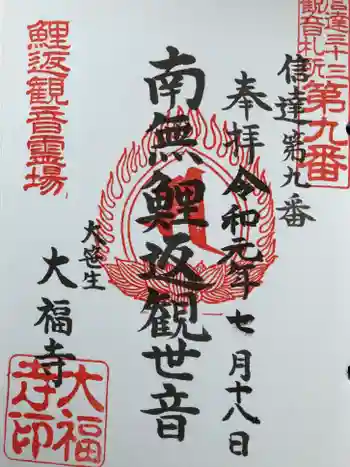 信達三十三
観音札所
第九番
信達第九番
奉拝 令和元年七月十八日
南無鯉返観世音
鯉返観音霊場
大笹生
大福寺
大福
寺印